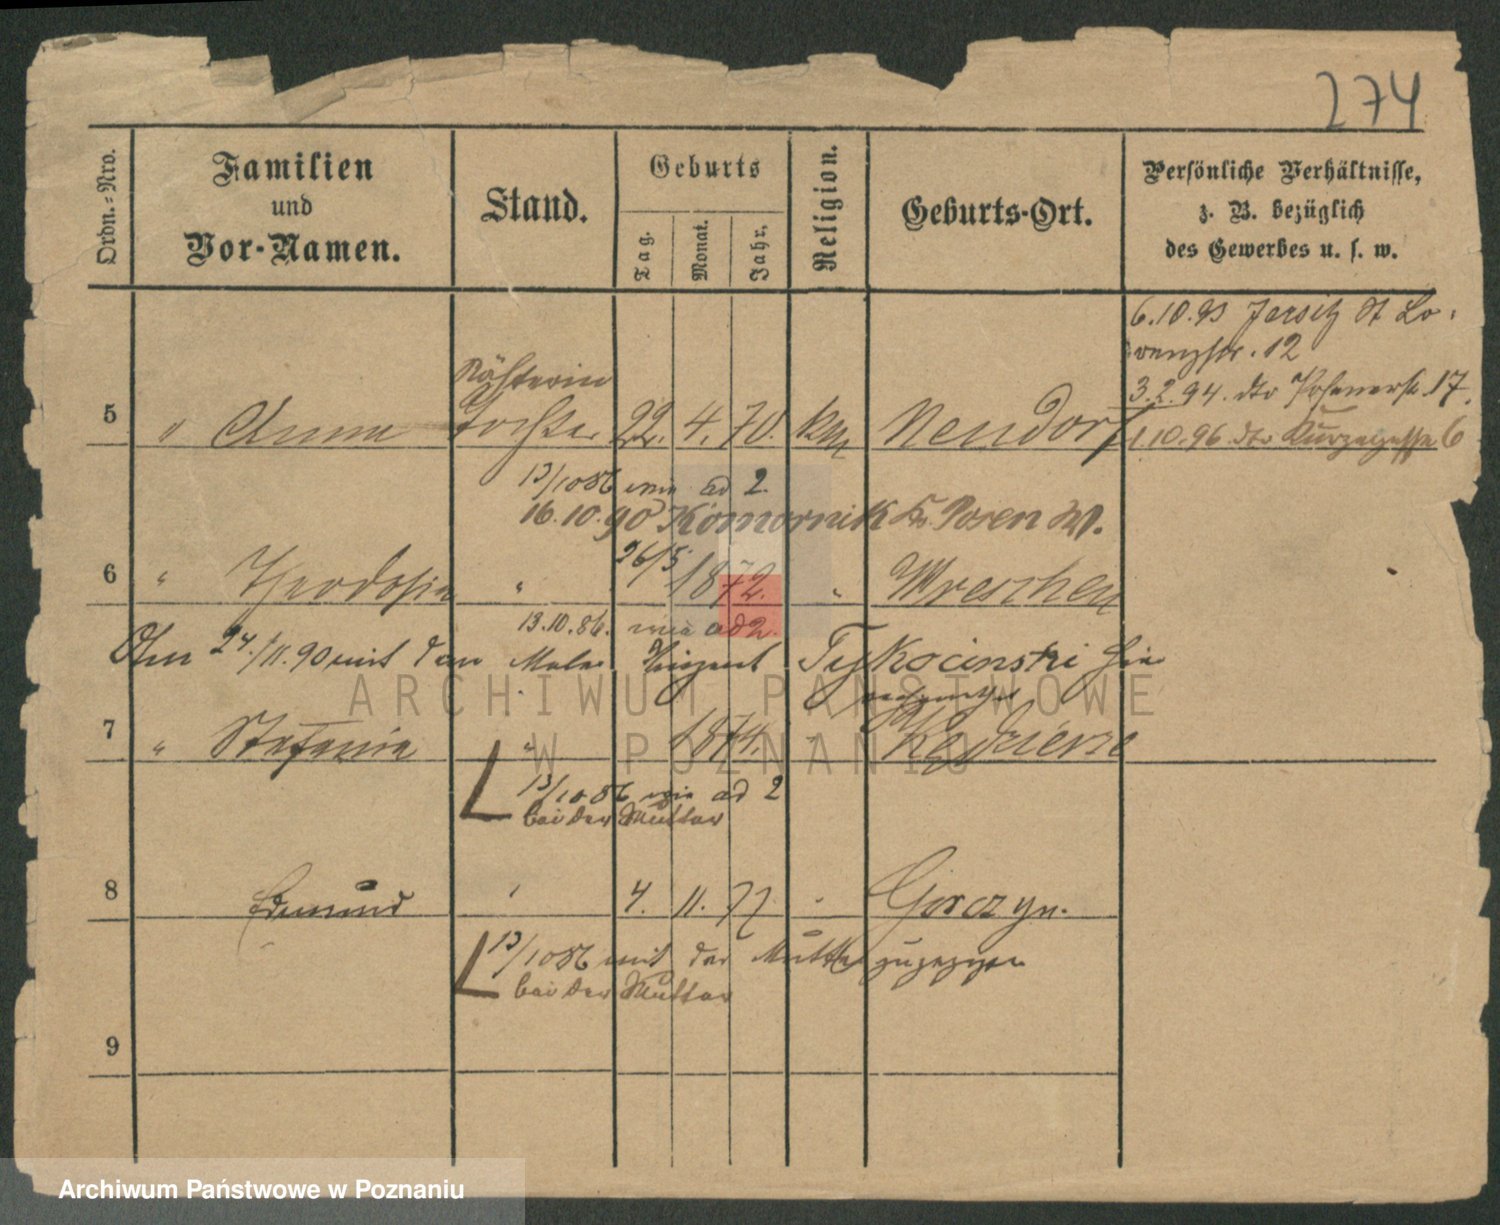 274
Ordn.-Nro.
Familien
und
Vor-Namen.
Stand.
Geburts
Tag.
Monat.
Jahr.
Religion.
Geburts-Ort.
Persönliche Verhältnisse,
z. B. bezüglich
des Gewerbes u. s. w.
6.10.93 Jersitz St Lo-
renzstr. 12
3.2.94. dto Posenerstr. 17.
1.10.96. dto 6
Nähterin
5 " Anna Tochter 22. 4. 70. kath Neudorf
13/10 86 wie ad 2.
16.10.90 Komornik Kr. Posen W.
6 " Theodosia " 26/5 1872. " Wreschen
13.10.86. wie ad 2.
Am 24./11.90 mit dem Maler Vinzent Tykocinski hier
7 " Stefania " 1874. "
13/10 86 wie ad 2
bei der Mutter
8 Edmund 4. 11. 77 " Gorczyn.
13/10 86 mit der Mutter zugezogen
bei der Mutter
9
ARCHIWUM PAŃSTWOWE
W POZNANIU
Archiwum Państwowe w Poznaniu